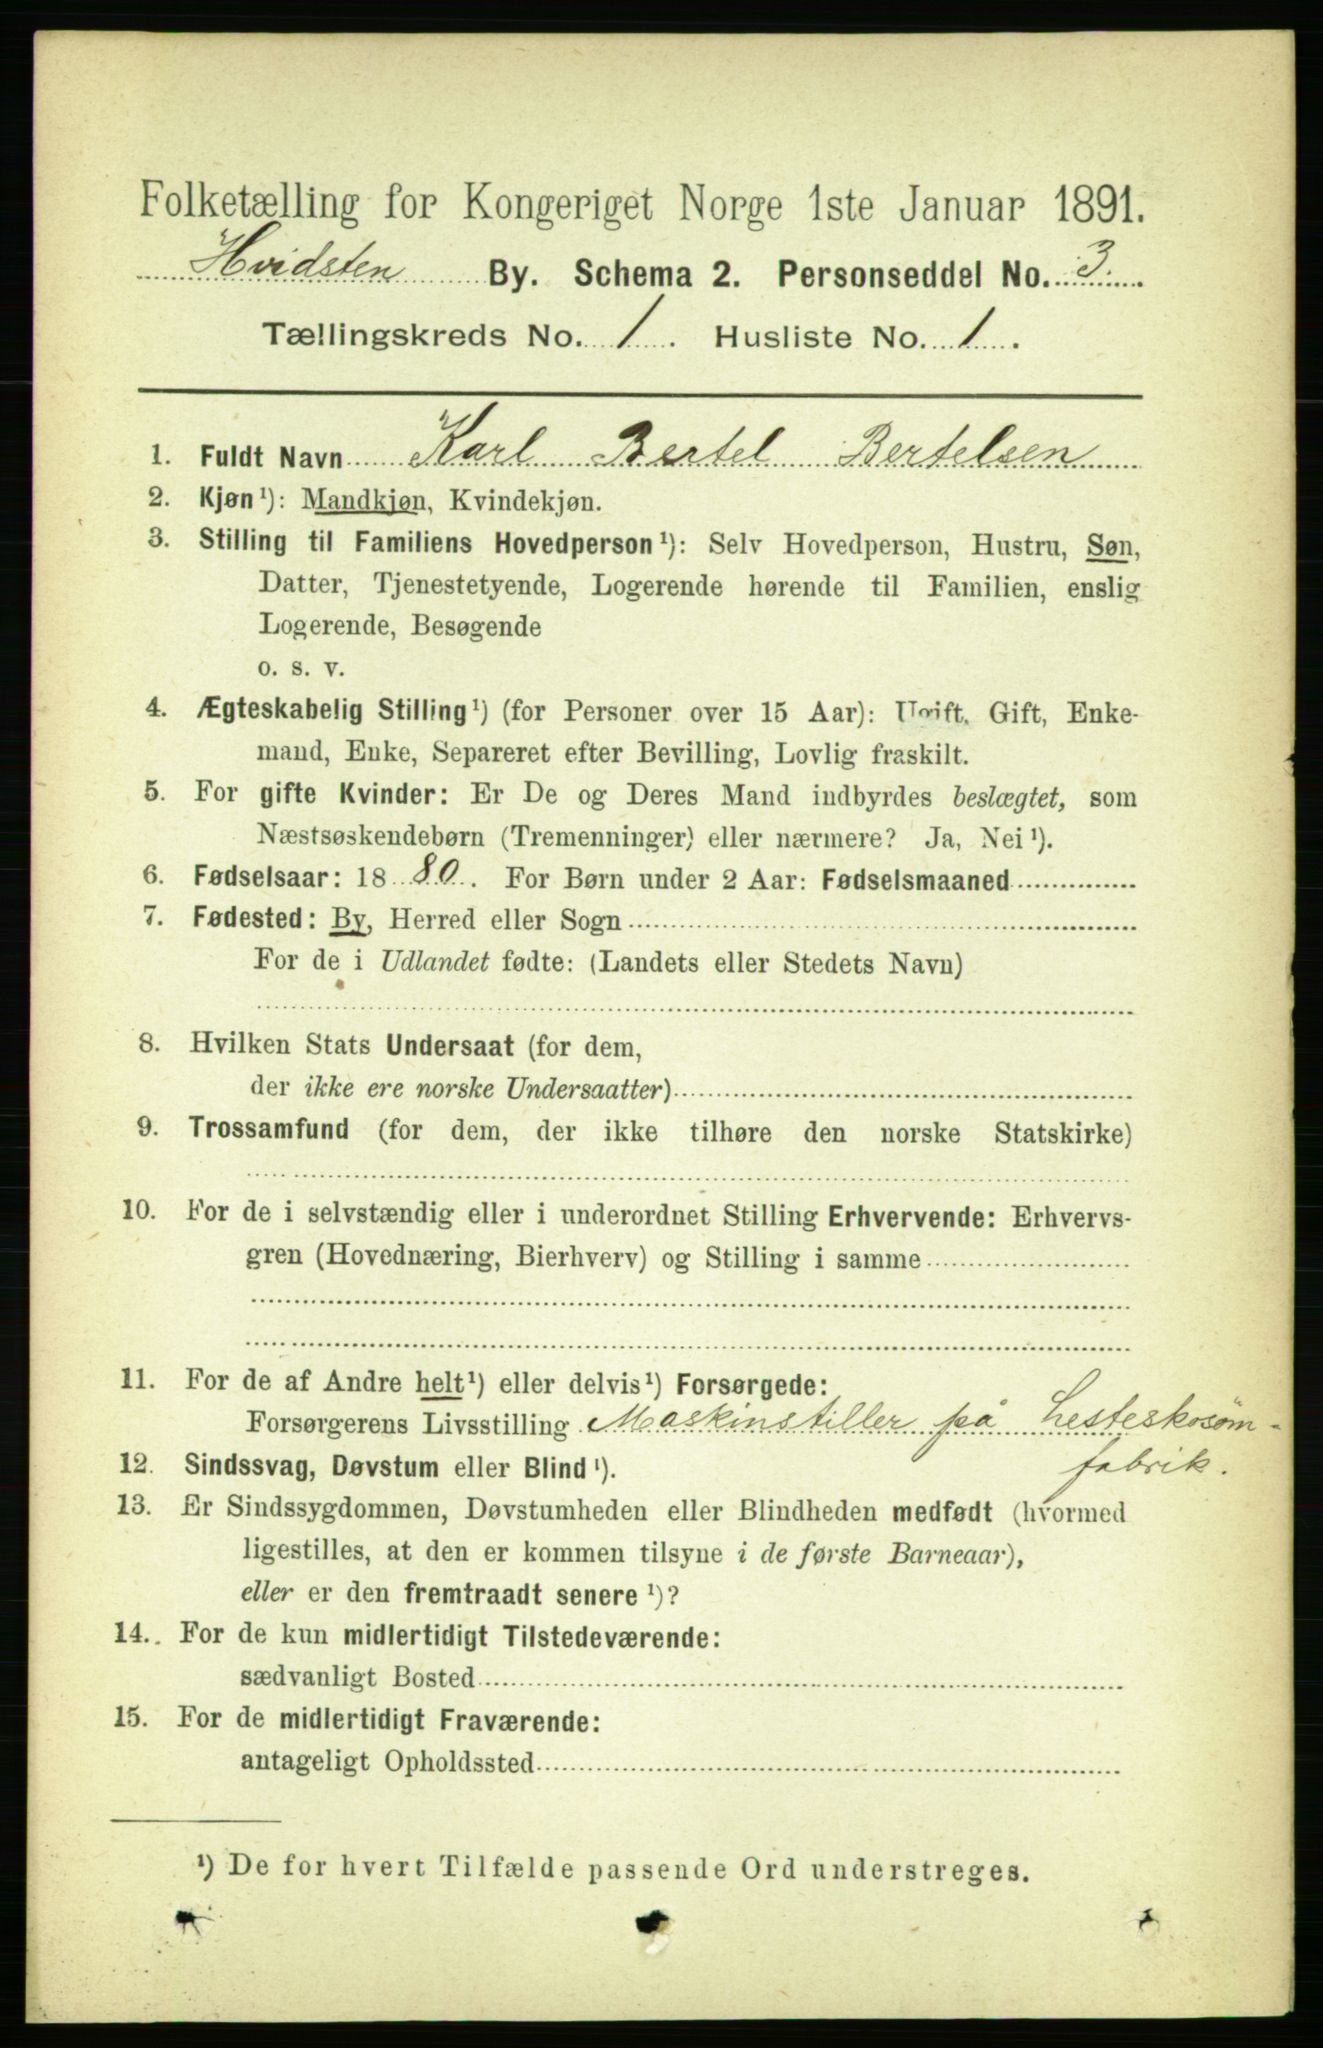 Folketælling for Kongeriget Norge 1ste Januar 1891.
Hvidsten By. Schema 2. Personseddel No. 3.
Tællingskreds No. 1. Husliste No. 1.
1. Fuldt Navn Karl Bertel Bertelsen
2. Kjøn¹): Mandkjøn, Kvindekjøn.
3. Stilling til Familiens Hovedperson¹): Selv Hovedperson, Hustru, Søn,
Datter, Tjenestetyende, Logerende hørende til Familien, enslig
Logerende, Besøgende
o. s. v.
4. Ægteskabelig Stilling¹) (for Personer over 15 Aar): Ugift, Gift, Enke-
mand, Enke, Separeret efter Bevilling, Lovlig fraskilt.
5. For gifte Kvinder: Er De og Deres Mand indbyrdes beslægtet, som
Næstsøskendebørn (Tremenninger) eller nærmere? Ja, Nei¹).
6. Fødselsaar: 1880. For Børn under 2 Aar: Fødselsmaaned
7. Fødested: By, Herred eller Sogn
For de i Udlandet fødte: (Landets eller Stedets Navn)
8. Hvilken Stats Undersaat (for dem,
der ikke ere norske Undersaatter)
9. Trossamfund (for dem, der ikke tilhøre den norske Statskirke)
10. For de i selvstændig eller i underordnet Stilling Erhvervende: Erhvervs-
gren (Hovednæring, Bierhverv) og Stilling i samme
11. For de af Andre helt¹) eller delvis¹) Forsørgede:
Forsørgerens Livsstilling Maskinstiller på Hesteskosöm-
fabrik.
12. Sindssvag, Døvstum eller Blind¹).
13. Er Sindssygdommen, Døvstumheden eller Blindheden medfødt (hvormed
ligestilles, at den er kommen tilsyne i de første Barneaar),
eller er den fremtraadt senere¹)?
14. For de kun midlertidigt Tilstedeværende:
sædvanligt Bosted
15. For de midlertidigt Fraværende:
antageligt Opholdssted
¹) De for hvert Tilfælde passende Ord understreges.